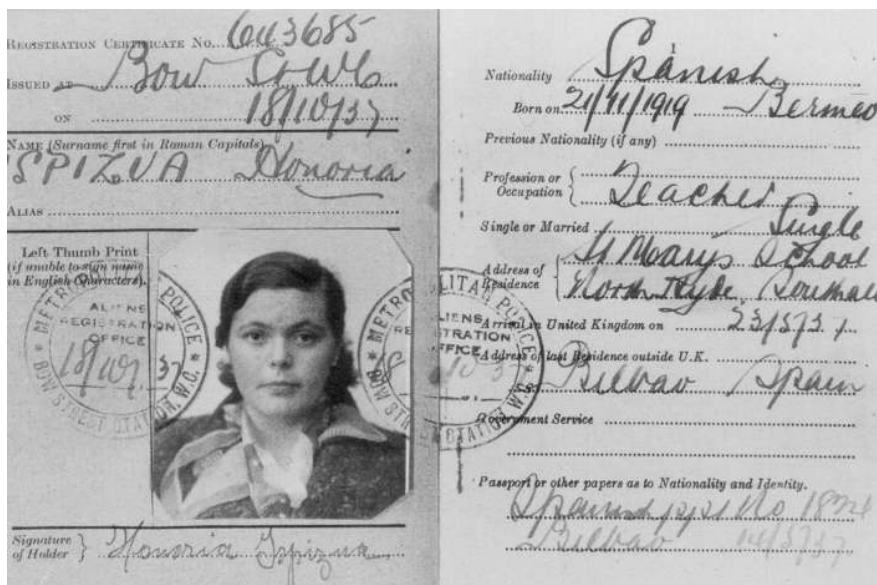 REGISTRATION CERTIFICATE No. 643685
ISSUED AT Bow St W.C.
ON 18/10/37
NAME (Surname first in Roman Capitals)
ISPIZUA Honoria
ALIAS
Left Thumb Print
(if unable to sign name
in English Characters).
METROPOLITAN POLICE
ALIENS
REGISTRATION
OFFICE
18 37
BOW STREET STATION, W.C.
Signature
of Holder } Honoria Ispizua
1
Nationality Spanish
Born on 21/11/1919 Bermeo
Previous Nationality (if any)
Profession or
Occupation { Teacher
Single or Married Single
Address of
Residence { St Mary's School
North Hyde, Southall
Arrival in United Kingdom on 23/5/37
Address of last Residence outside U.K.
Bilbao Spain
Government Service
Passport or other papers as to Nationality and Identity.
Spanish ppt No
Bilbao
METROPOLITAN POLICE
ALIENS
REGISTRATION
OFFICE
BOW STREET STATION, W.C.